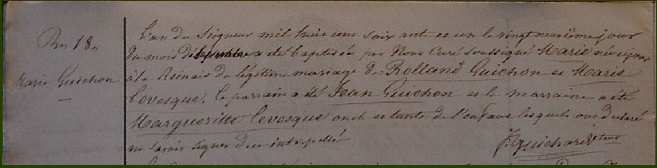 Bme 18e
Marie Guichon
L'an du Seigneur mil huit cent soixante et un le vingt unième jour
du mois a été baptisée par Nous Curé soussigné Marie née ce jour
à la de légitime mariage de Rolland Guichon et Marie
Levesque. Le parrain a été Jean Guichon et la marraine a été
Marguerite Levesque oncle et tante de l'enfant lesquels ont déclaré
ne savoir signer de ce interpellé
J. Guichard